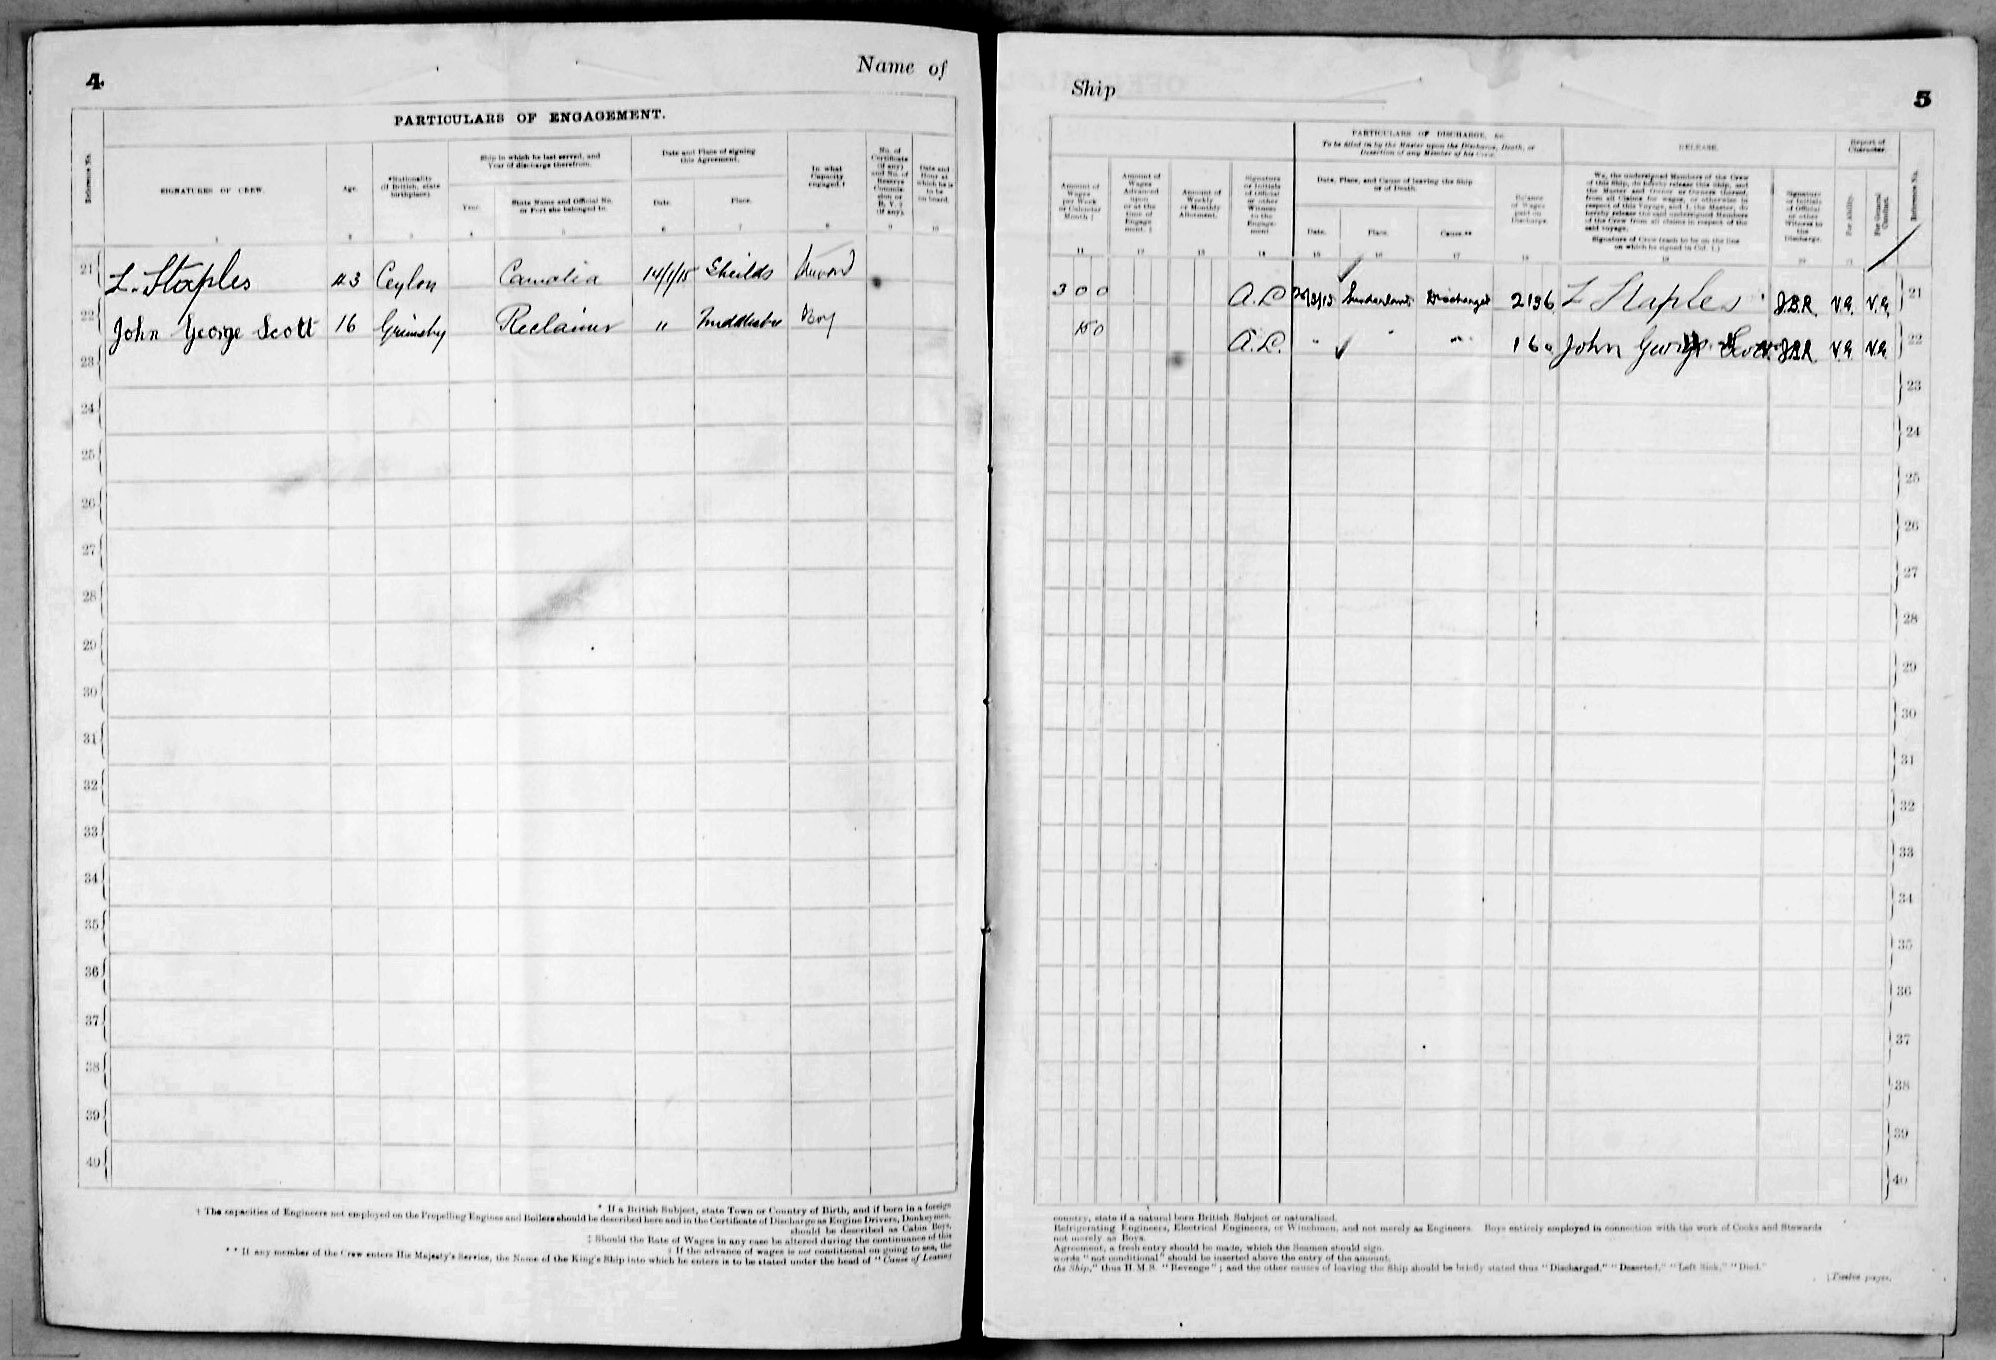 4
Name of
PARTICULARS OF ENGAGEMENT.
Reference No.
SIGNATURES OF CREW.
Age.
*Nationality
(if British, state
birthplace).
Ship in which he last served, and
Year of discharge therefrom.
Year.
State Name and Official No.
or Port she belonged to.
Date and Place of signing
this Agreement.
Date.
Place.
In what
Capacity
engaged.†
No. of
Certificate
(if any)
and No. of
Reserve
Commis-
sion or
R. V. 2
(if any).
Date and
Hour at
which he is
to be
on board.
1 2 3 4 5 6 7 8 9 10
21 L. Staples 43 Ceylon Camelia 14/1/15 Sheilds
22 John George Scott 16 Grimsby Reclaimer " Middlesbro Boy
23
24
25
26
27
28
29
30
31
32
33
34
35
36
37
38
39
40
* If a British Subject, state Town or Country of Birth, and if born in a foreign
† The capacities of Engineers not employed on the Propelling Engines and Boilers should be described here and in the Certificate of Discharge as Engine Drivers, Donkeymen,
should be described as Cabin Boys,
‡ Should the Rate of Wages in any case be altered during the continuance of this
§ If the advance of wages is not conditional on going to sea, the
** If any member of the Crew enters His Majesty's Service, the Name of the King's Ship into which he enters is to be stated under the head of "Cause of Leaving
Ship
5
PARTICULARS OF DISCHARGE, &c.
To be filled in by the Master upon the Discharge, Death, or
Desertion of any Member of his Crew.
RELEASE.
Report of
Character.
Amount of
Wages
per Week
or Calendar
Month ‡
Amount of
Wages
Advanced
upon
or at the
time of
Engage-
ment. §
Amount of
Weekly
or Monthly
Allotment.
Signature
or Initials
of Official
or other
Witness
to the
Engage-
ment
Date, Place, and Cause of leaving the Ship
or of Death.
Date.
Place.
Cause.**
Balance
of Wages
paid on
Discharge.
We, the undersigned Members of the Crew
of this Ship, do hereby release this Ship, and
the Master and Owner or Owners thereof,
from all Claims for wages, or otherwise in
respect of this Voyage, and I, the Master, do
hereby release the said undersigned Members
of the Crew from all claims in respect of the
said voyage.
Signature of Crew (each to be on the line
on which he signed in Col. 1.)
Signature
or Initials
of Official
or other
Witness to
the
Discharge.
For Ability.
For General
Conduct.
Reference No.
11 12 13 14 15 16 17 18 19 20 21
3 0 0 Sunderland Discharged 2 19 6 L Staples J.B.R. V.G. V.G. 21
15 0 " " " 1 6 0 John George Scott J.B.R V.G V.G 22
23
24
25
26
27
28
29
30
31
32
33
34
35
36
37
38
39
40
country, state if a natural born British Subject or naturalized.
Refrigerating Engineers, Electrical Engineers, or Winchmen, and not merely as Engineers. Boys entirely employed in connection with the work of Cooks and Stewards
not merely as Boys.
Agreement, a fresh entry should be made, which the Seamen should sign.
words "not conditional" should be inserted above the entry of the amount.
the Ship," thus H.M.S. "Revenge"; and the other causes of leaving the Ship should be briefly stated thus "Discharged," "Deserted," "Left Sick," "Died."
[Twelve pages.